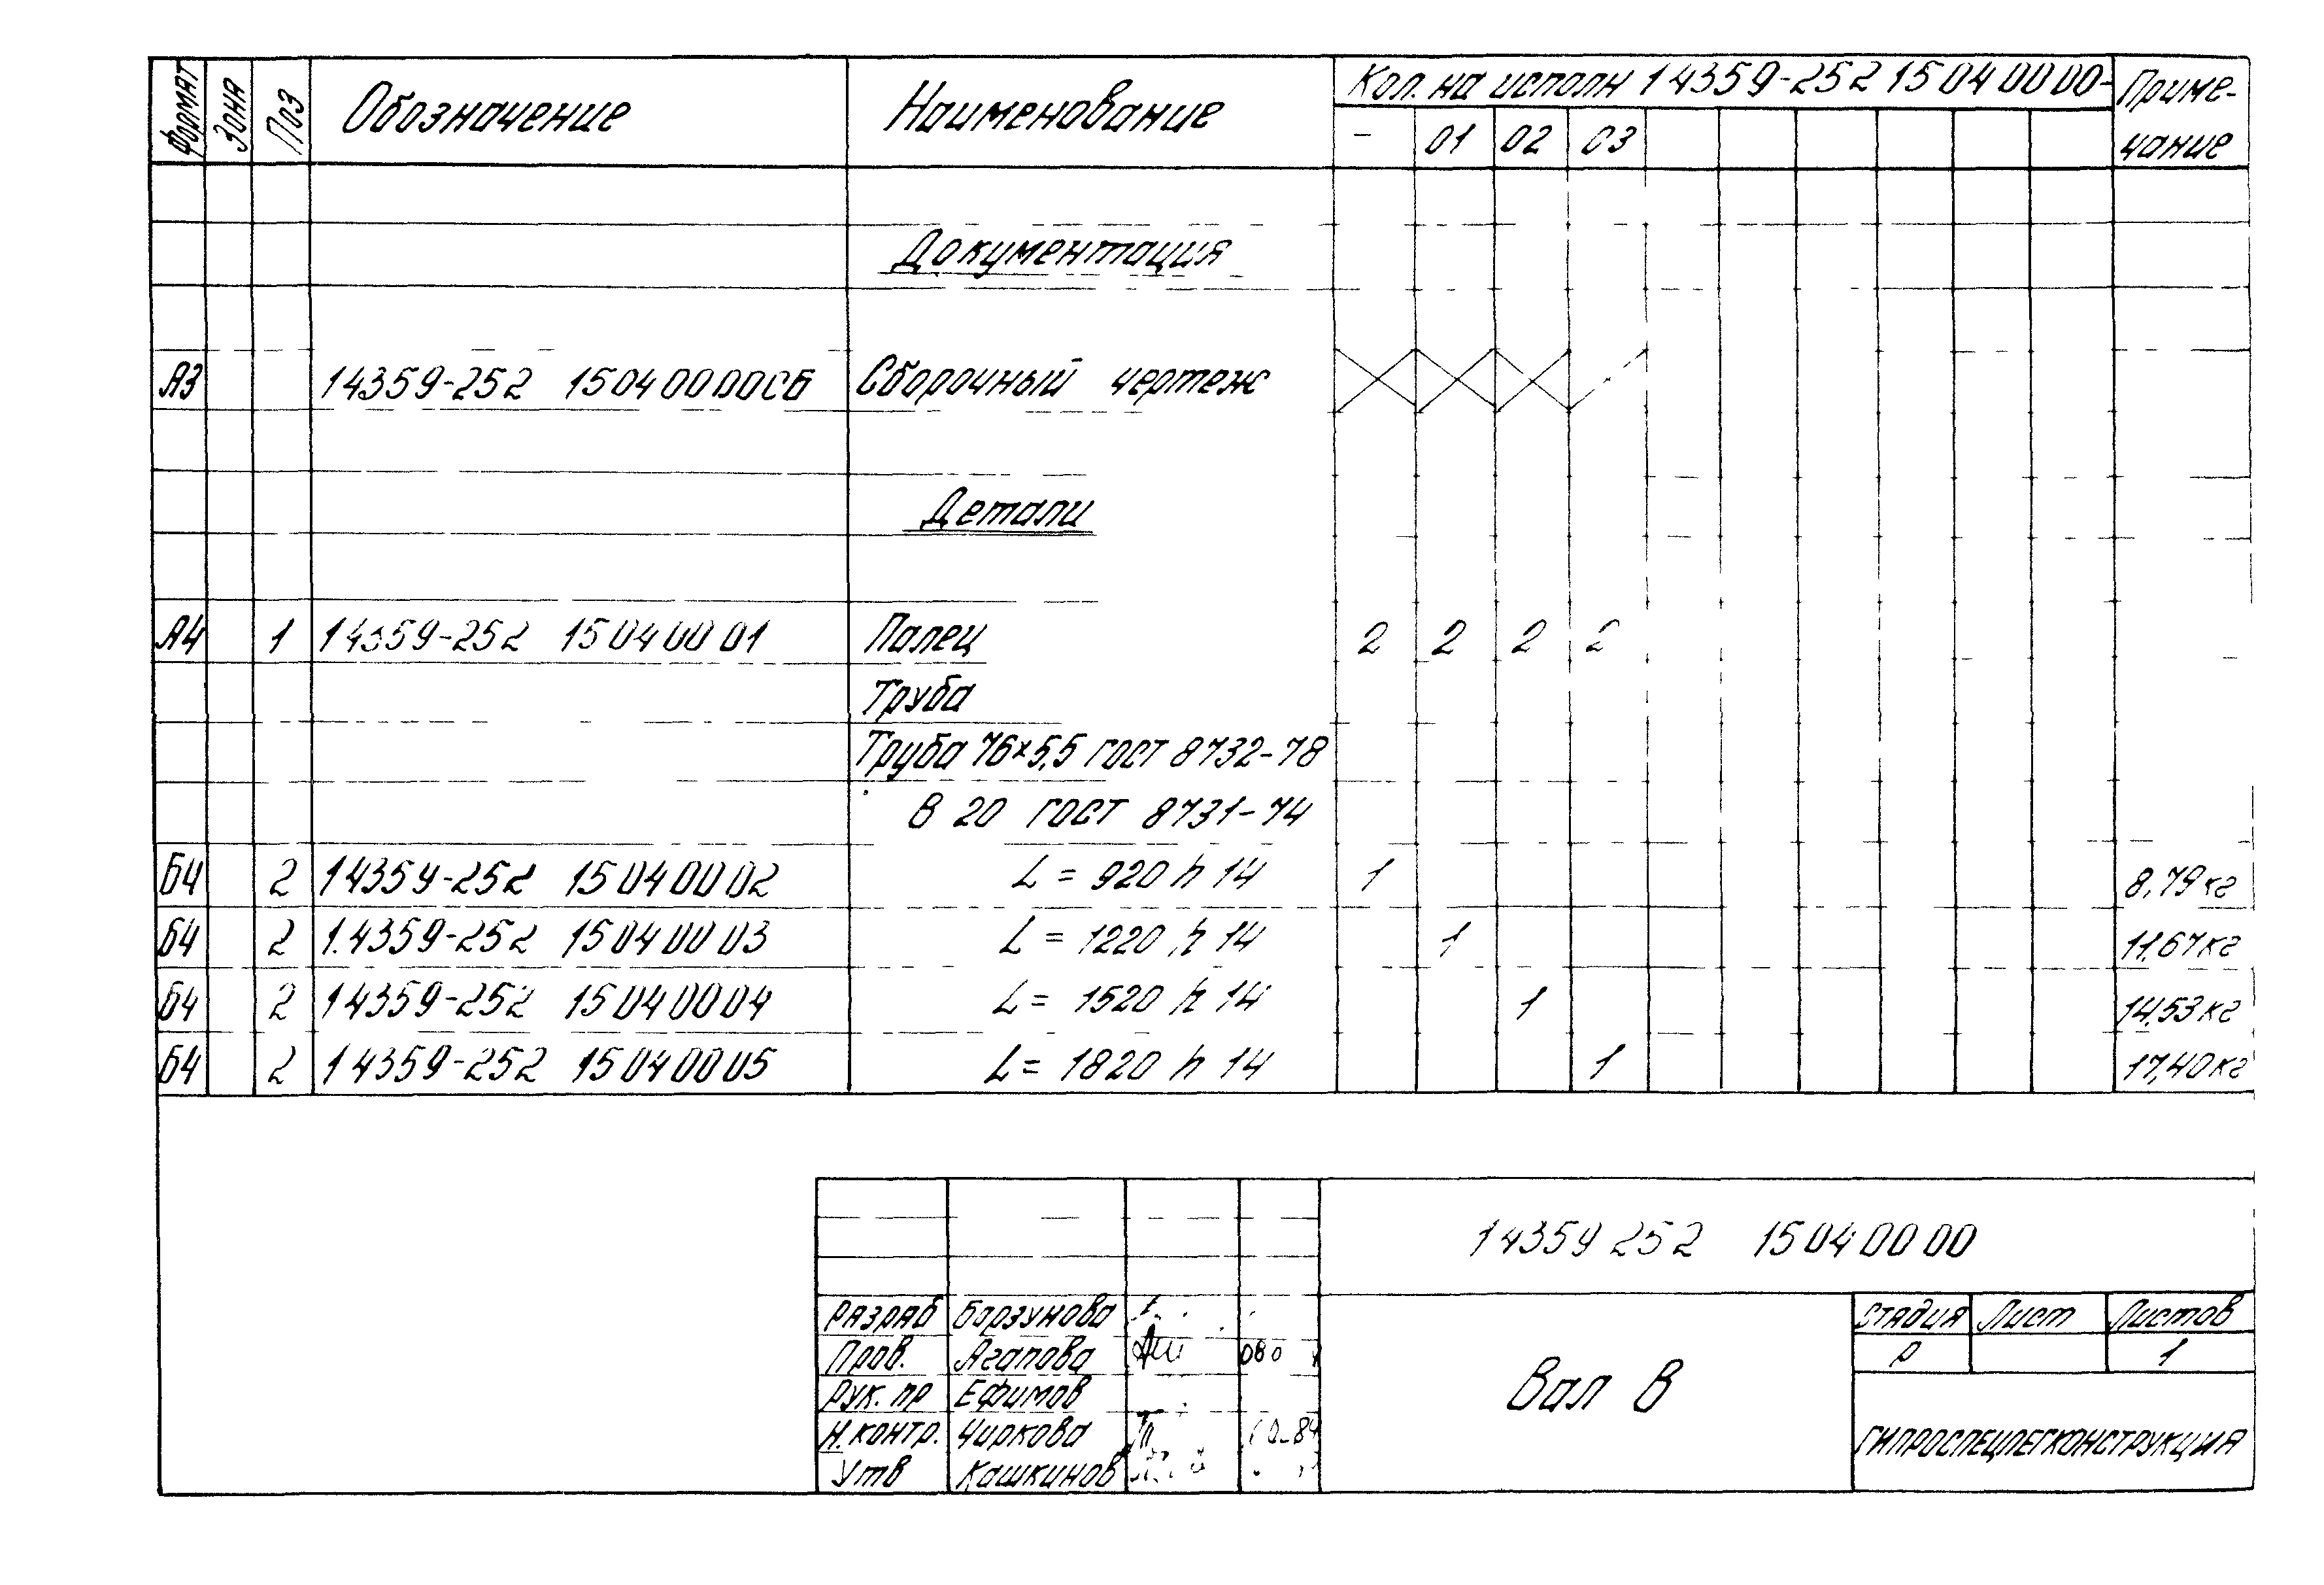 Формат Зона Поз Обозначение Наименование Кол. на исполн 14359-252 15 04 00 00- Приме-
чание
- 01 02 03
Документация
А3 14359-252 15 04 00 00СБ Сборочный чертеж
Детали
А4 1 14359-252 15 04 00 01 Палец 2 2 2 2
Труба
Труба 76×5,5 ГОСТ 8732-78
В 20 ГОСТ 8731-74
Б4 2 14359-252 15 04 00 02 L = 920 h 14 1 8,79 кг
Б4 2 1.4359-252 15 04 00 03 L = 1220 h 14 1 11,67 кг
Б4 2 14359-252 15 04 00 04 L = 1520 h 14 1 14,53 кг
Б4 2 14359-252 15 04 00 05 L = 1820 h 14 1 17,40 кг
14359 252 15 04 00 00
Разраб Борзунова
Пров. Агапова
Рук. пр Ефимов
Н. контр. Чиркова
Утв Кашкинов
Вал В
Стадия Лист Листов
Р 1
ГИПРОСПЕЦЛЕГКОНСТРУКЦИЯ